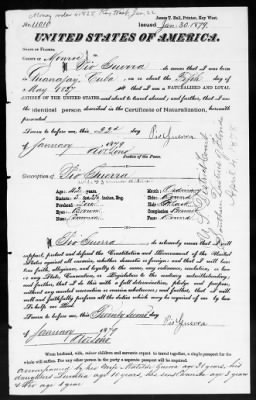 Money order
James T. Ball, Printer, Key West.
No. 11010 Issued, Jan. 30. 1879.
UNITED STATES OF AMERICA.
STATE OF FLORIDA,
County of Monroe
I, Pio Guerra
born in Guanajay, Cuba, on or about the Fifth day
of May 1837 that I am a NATURALIZED AND LOYAL
CITIZEN OF THE UNITED STATES and about to travel abroad; and further, that I am
the identical person described in the Certificate of Naturalization, herewith
presented.
Sworn to before me, this 22d day
of January 1879
Pio Guerra
Description of Pio Guerra
Age: 42 years.
Mouth: Ordinary
Stature: 5 feet
Chin: Round
Forehead:
Hair:
Eyes: Brown
Complexion:
Nose:
Face: Round
I, Pio Guerra do solemnly swear that I will
support, protect and defend the Constitution and Government of the United
States against all enemies, whether domestic or foreign; and that I will bear
true faith, allegiance, and loyalty to the same, any ordinance, resolution, or law
of any State, Convention, or Legislature to the contrary notwithstanding;
and further, that I do this with a full determination, pledge, and purpose,
without any mental reservation or evasion whatsoever; and further, that I will
well and faithfully perform all the duties which may be required of me by law.
So help me God.
Sworn to before me, this Twenty Second day
of January 1879
Pio Guerra
When husband, wife, minor children and servants expect to travel together, a single passport for the
whole will suffice. For any other person in the party a separate passport will be required.
accompanied by his wife Matilde Guerra age 31 years, his
daughters age 10 years, his sons age 3 years
& Pio age 1 year